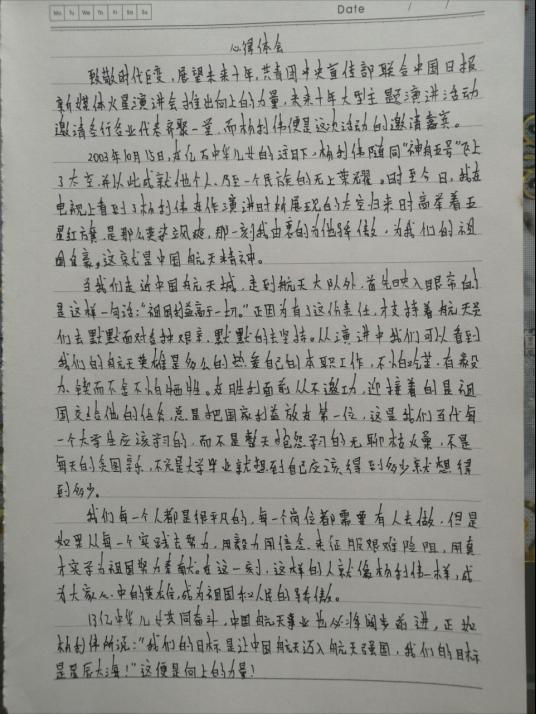 Mo Tu We Th Fr Sa Su
Date / /
心得体会
致敬时代巨变，展望未来十年，共青团中央宣传部联合中国日报
新媒体火星演讲会推出向上的力量，未来十年大型主题演讲活动
邀请各行各业代表齐聚一堂，而杨利伟便是这次活动的邀请嘉宾。
2003年10月15日，在亿万中华儿女的注目下，杨利伟随同“神舟五号”飞上
了太空，并以此成就他个人，乃至一个民族的无上荣耀。时至今日，我在
电视上看到了杨利伟在作演讲时所展现的太空归来时高举着五
星红旗是那么英姿飒爽，那一刻我由衷的为他骄傲，为我们的祖
国自豪，这就是中国航天精神。
当我们走近中国航天城，走到航天大队外，首先映入眼帘的
是这样一句话：“祖国利益高于一切。”正因为有了这份责任，才支持着航天员
们去默默面对各种艰辛，默默的去坚持。从演讲中我们可以看到
我们的航天英雄是多么的热爱自己的本职工作，不怕吃苦，有毅
力，锲而不舍不怕牺牲。在胜利面前从不邀功，迎接着的是祖
国交给他的任务，总是把国家利益放在第一位，这是我们当代每
一个大学生应该学习的，而不是整天抱怨学习的无聊枯燥，不是
每天的贪图享乐，不完是大学毕业就想到自己应该得到多少就想得
到多少。
我们每一个人都是很平凡的，每一个岗位都需要有人去做，但是
如果从每一个实践去努力，用毅力用信念，来征服艰难险阻，用真
才实学为祖国努力奋斗在这一刻，这样的人就像杨利伟一样，成
为大家心中的英雄，成为祖国和人民的骄傲。
13亿中华儿女共同奋斗，中国航天事业也必将阔步前进，正如
杨利伟所说：“我们的目标是让中国航天迈入航天强国，我们的目标
是星辰大海！”这便是向上的力量！